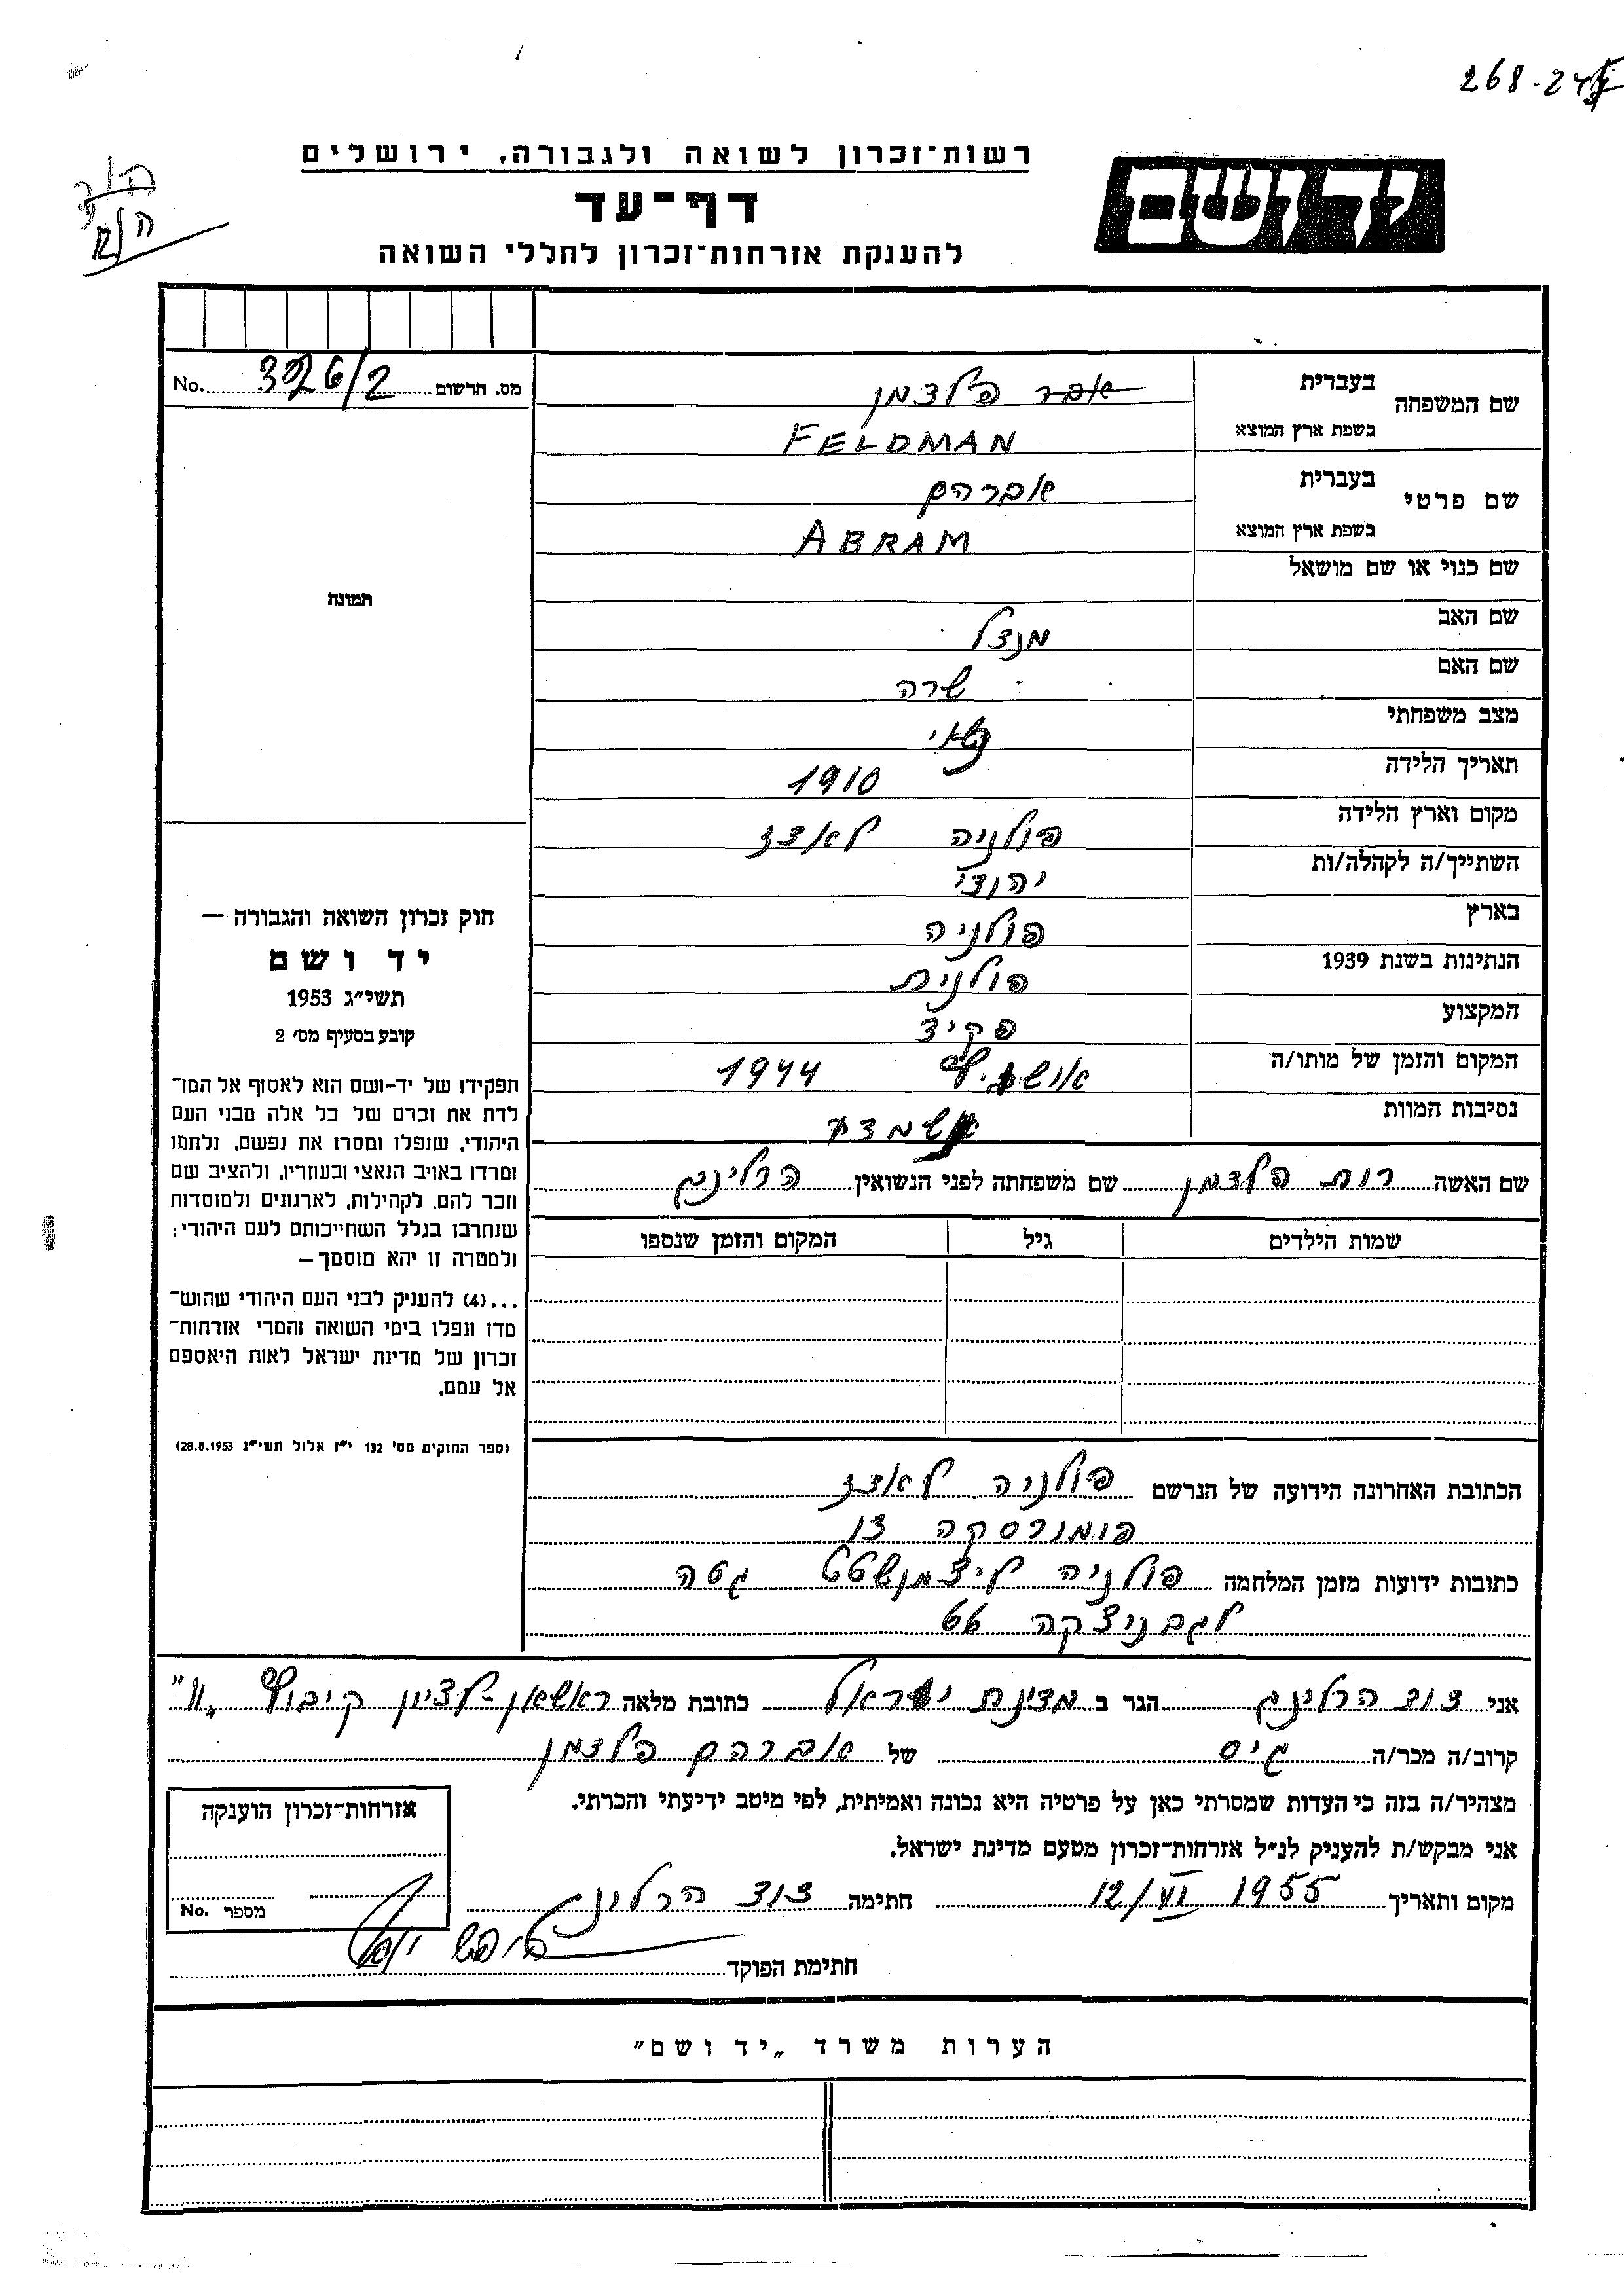 268-24
רשות-זכרון לשואה ולגבורה, ירושלים
יד ושם
דף-עד
להענקת אזרחות-זכרון לחללי השואה
מס. הרשום 326/2 No.
שם המשפחה
בעברית אבר פלדמן
בשפת ארץ המוצא FELDMAN
שם פרטי
בעברית אברהם
בשפת ארץ המוצא ABRAM
שם כנוי או שם מושאל
שם האב מנדל
שם האם שרה
מצב משפחתי נשאי
תאריך הלידה 1910
מקום וארץ הלידה פולניה לאדז
השתייך/ה לקהלה/ות יהודי
בארץ פולניה
הנתינות בשנת 1939 פולנית
המקצוע פקיד
המקום והזמן של מותו/ה 1944
נסיבות המוות
שם האשה רות פלדמן שם משפחתה לפני הנשואין הרלינג
שמות הילדים גיל המקום והזמן שנספו
תמונה
חוק זכרון השואה והגבורה —
יד ושם
תשי״ג 1953
קובע בסעיף מס׳ 2
תפקידו של יד-ושם הוא לאסוף אל המו־
לדת את זכרם של כל אלה מבני העם
היהודי, שנפלו ומסרו את נפשם, נלחמו
ומרדו באויב הנאצי ובעוזריו, ולהציב שם
וזכר להם, לקהילות, לארגונים ולמוסדות
שנחרבו בגלל השתייכותם לעם היהודי;
ולמטרה זו יהא מוסמך—
...(4) להעניק לבני העם היהודי שהוש־
מדו ונפלו בימי השואה והמרי אזרחות־
זכרון של מדינת ישראל לאות היאספם
אל עמם.
(ספר החוקים מס׳ 132 י״ז אלול תשי״ג 28.8.1953)
הכתובת האחרונה הידועה של הנרשם פולניה לאדז
פומורסקה 13
כתובות ידועות מזמן המלחמה פולניה ליצמנשטט גטה
לגבניצקה 66
אני דוד הרלינג הגר ב מדינת ישראל כתובת מלאה ראשאון-לציון קיבוץ
קרוב/ה מכר/ה גיס של אברהם פלדמן
מצהיר/ה בזה כי העדות שמסרתי כאן על פרטיה היא נכונה ואמיתית, לפי מיטב ידיעתי והכרתי.
אני מבקש/ת להעניק לנ״ל אזרחות-זכרון מטעם מדינת ישראל.
מקום ותאריך 12/VI 1955 חתימה דוד הרלינג
חתימת הפוקד
אזרחות-זכרון הוענקה
מספר No.
הערות משרד „יד ושם״